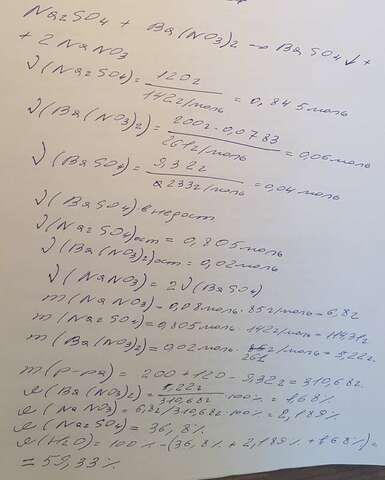 Na2SO4 + Ba(NO3)2 → BaSO4↓ +
+ 2NaNO3
ν(Na2SO4) = 120г / 142г/моль = 0,845моль
ν(Ba(NO3)2) = 200г·0,0783 / 261г/моль = 0,06моль
ν(BaSO4) = 9,32г / 233г/моль = 0,04моль
ν(BaSO4) в недост
ν(Na2SO4)ост = 0,805моль
ν(Ba(NO3)2)ост = 0,02моль
ν(NaNO3) = 2ν(BaSO4)
m(NaNO3) = 0,08моль·85г/моль = 6,8г
m(Na2SO4) = 0,805моль·142г/моль = 114,31г
m(Ba(NO3)2) = 0,02моль·261г/моль = 5,22г
m(р-ра) = 200 + 120 - 9,32г = 310,68г
ω(Ba(NO3)2) = 5,22г / 310,68г ·100% = 1,68%
ω(NaNO3) = 6,8г/310,68г·100% = 2,189%
ω(Na2SO4) = 36,8%
ω(H2O) = 100% - (36,8% + 2,189% + 1,68%) =
= 59,33%